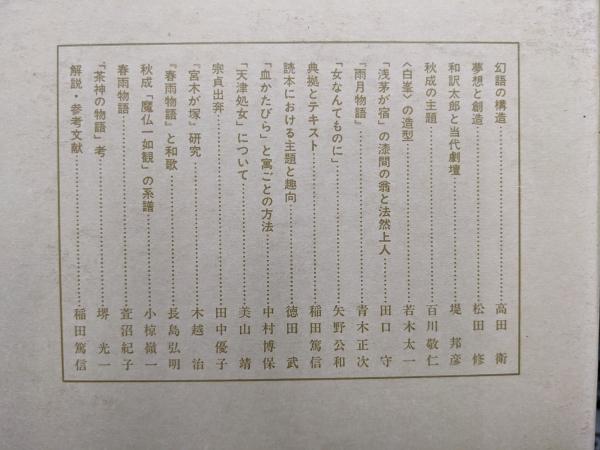 幻語の構造……高田 衛
夢想と創造……松田 修
和訳太郎と当代劇壇……堤 邦彦
秋成の主題……百川敬仁
〈白峯〉の造型……若木太一
「浅茅が宿」の漆間の翁と法然上人……田口 守
『雨月物語』……青木正次
「女なんてものに」……矢野公和
典拠とテキスト……稲田篤信
読本における主題と趣向……徳田 武
「血かたびら」と寓ごとの方法……中村博保
「天津処女」について……美山 靖
宗貞出奔……田中優子
『宮木が塚』研究……木越 治
『春雨物語』と和歌……長島弘明
秋成「魔仏一如観」の系譜……小椋嶺一
春雨物語……萱沼紀子
「茶神の物語」考……堺 光一
解説・参考文献……稲田篤信